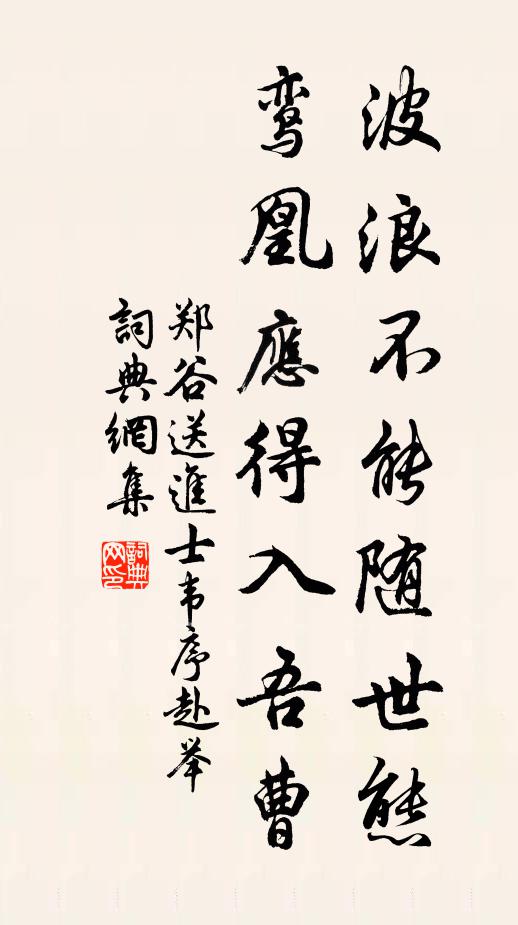 波浪不能随世態
鸾凰應得入吾曹
郑谷送進士韦序赴举
詞典網集
詞典网印